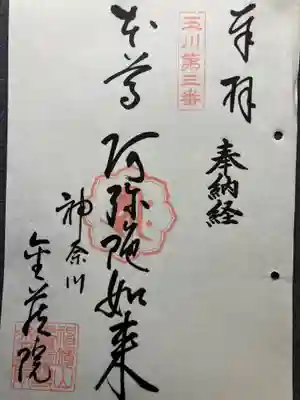 奉拝
奉納経
玉川第三番
本尊
阿弥陀如来
神奈川
金蔵院